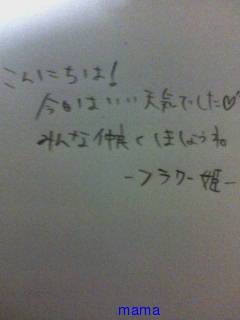 こんにちは!
今日はいい天気でした♡
みんな仲良くしましょうね。
ーフラワー姫ー
mama